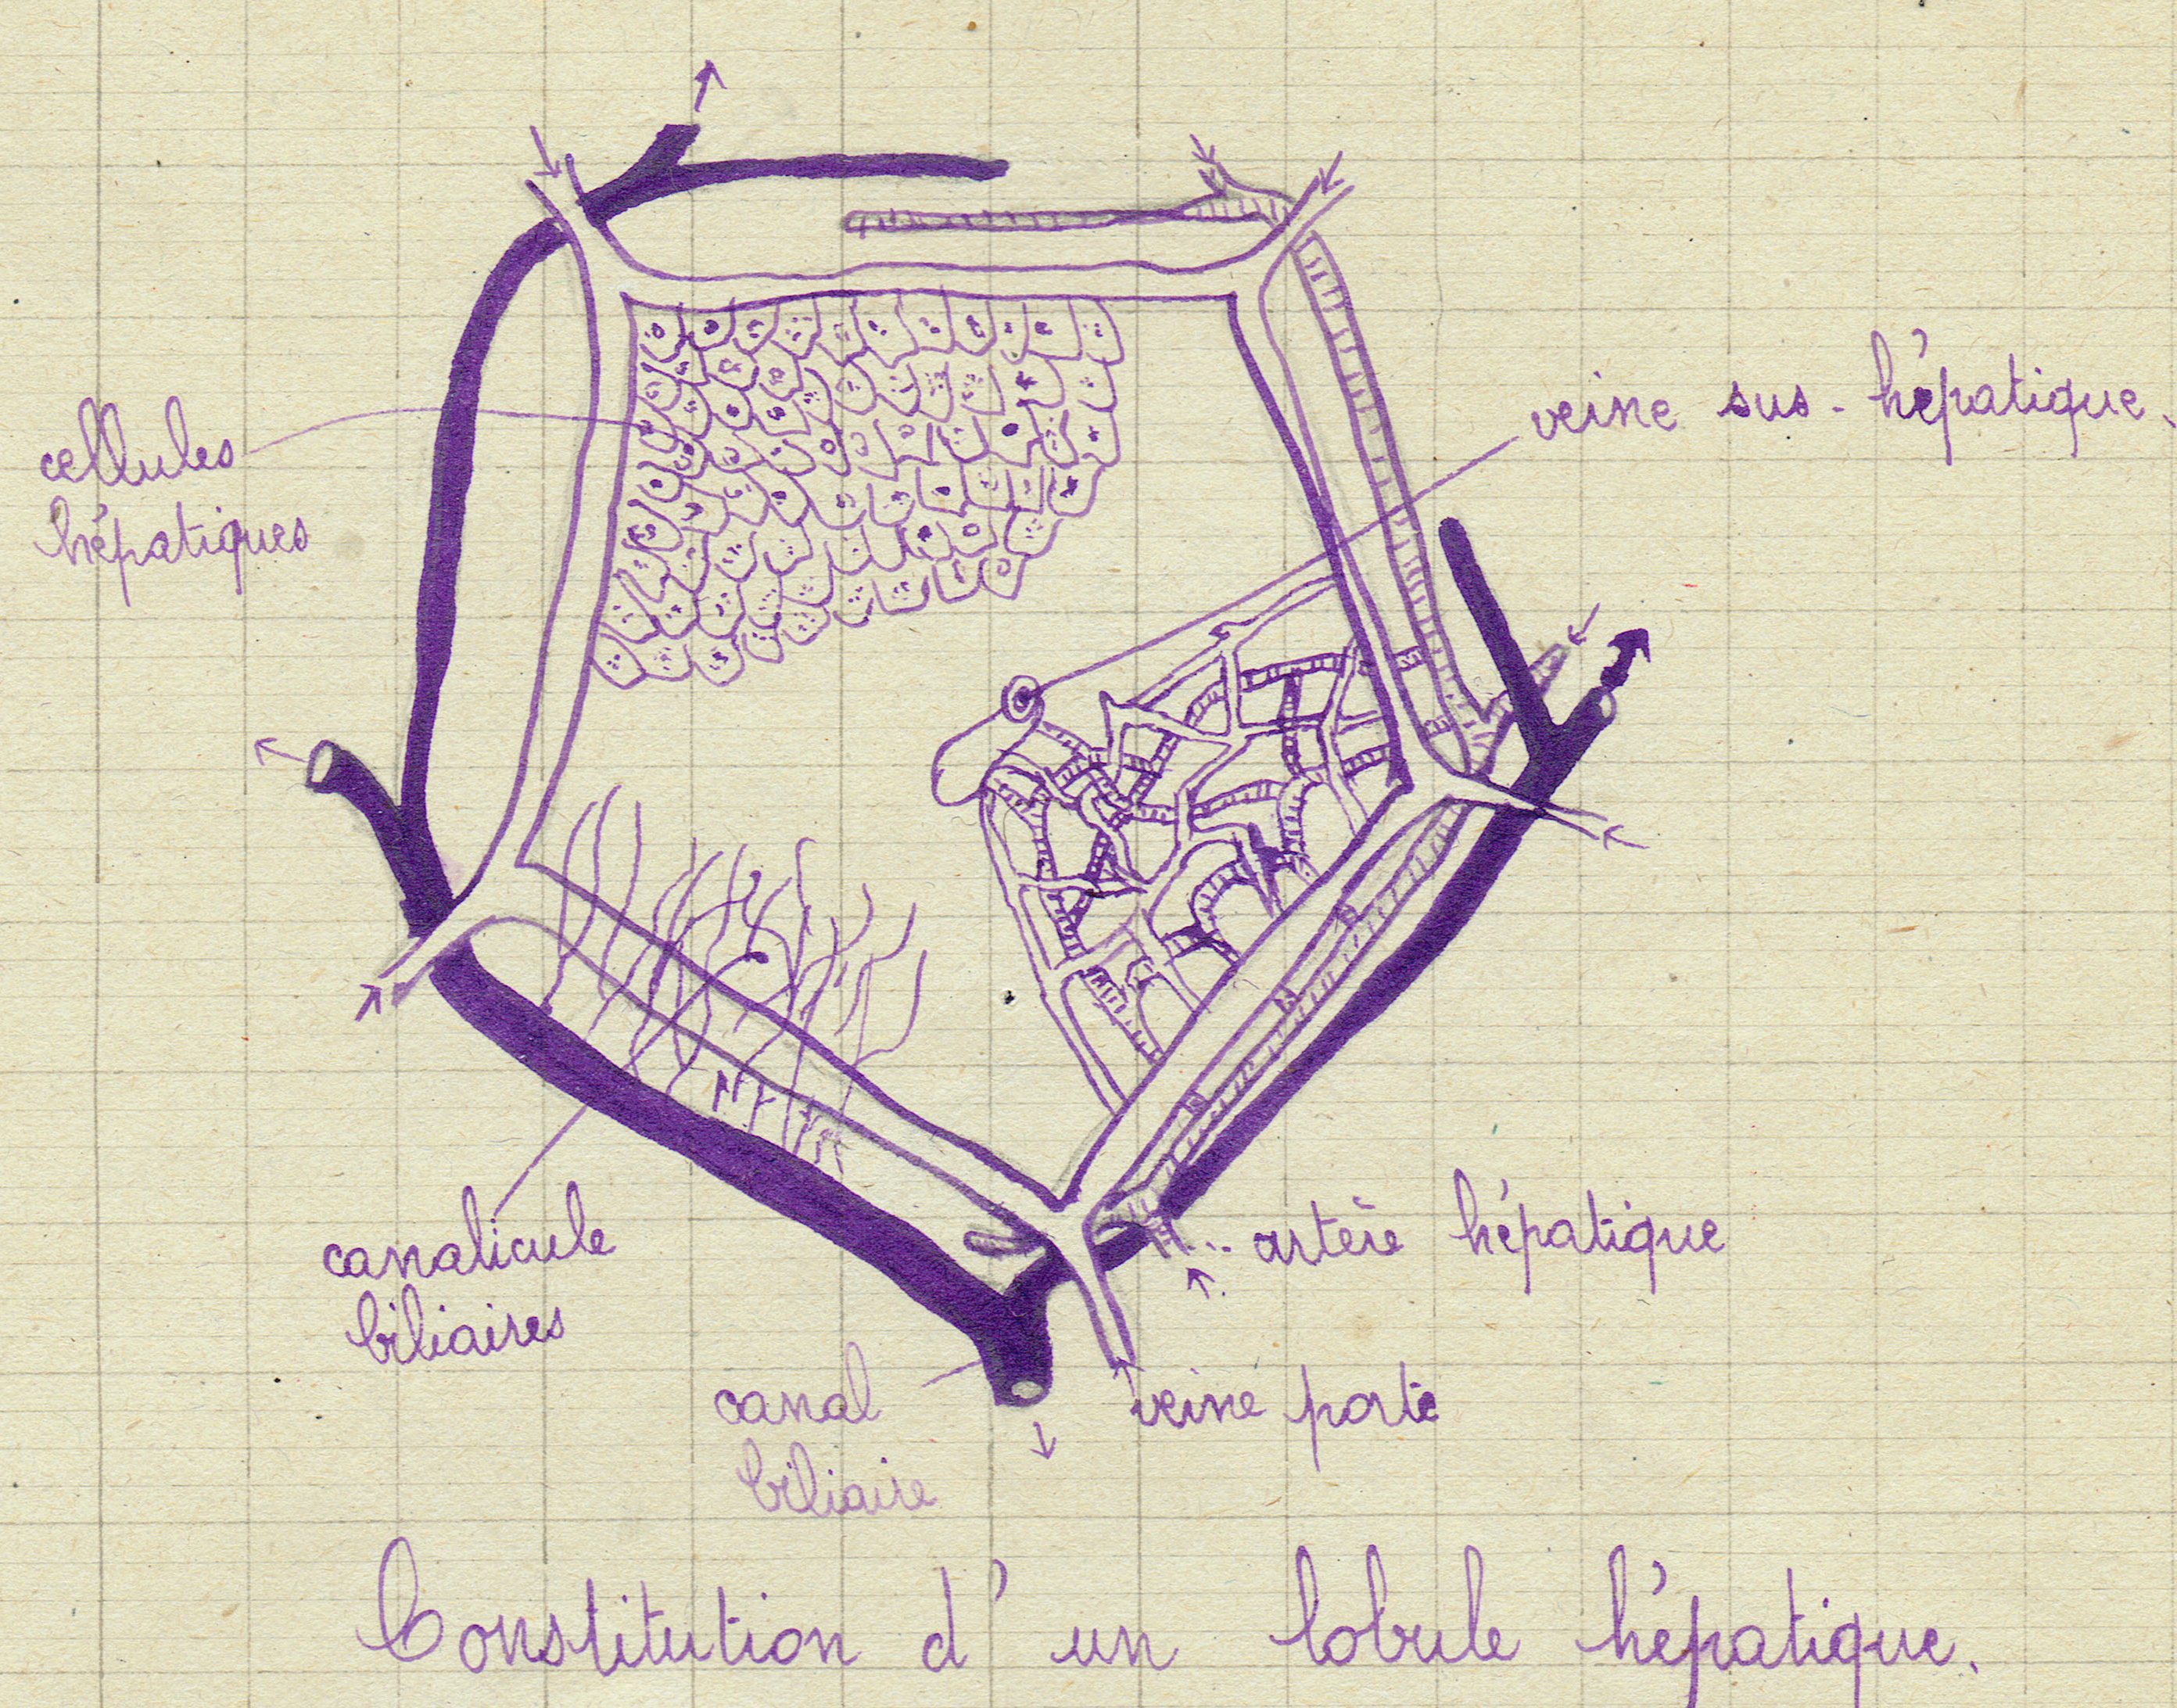 cellules
hépatiques
veine sus-hépatique.
canalicule
biliaires
artère hépatique
canal
biliaire
veine porte
Constitution d'un lobule hépatique.